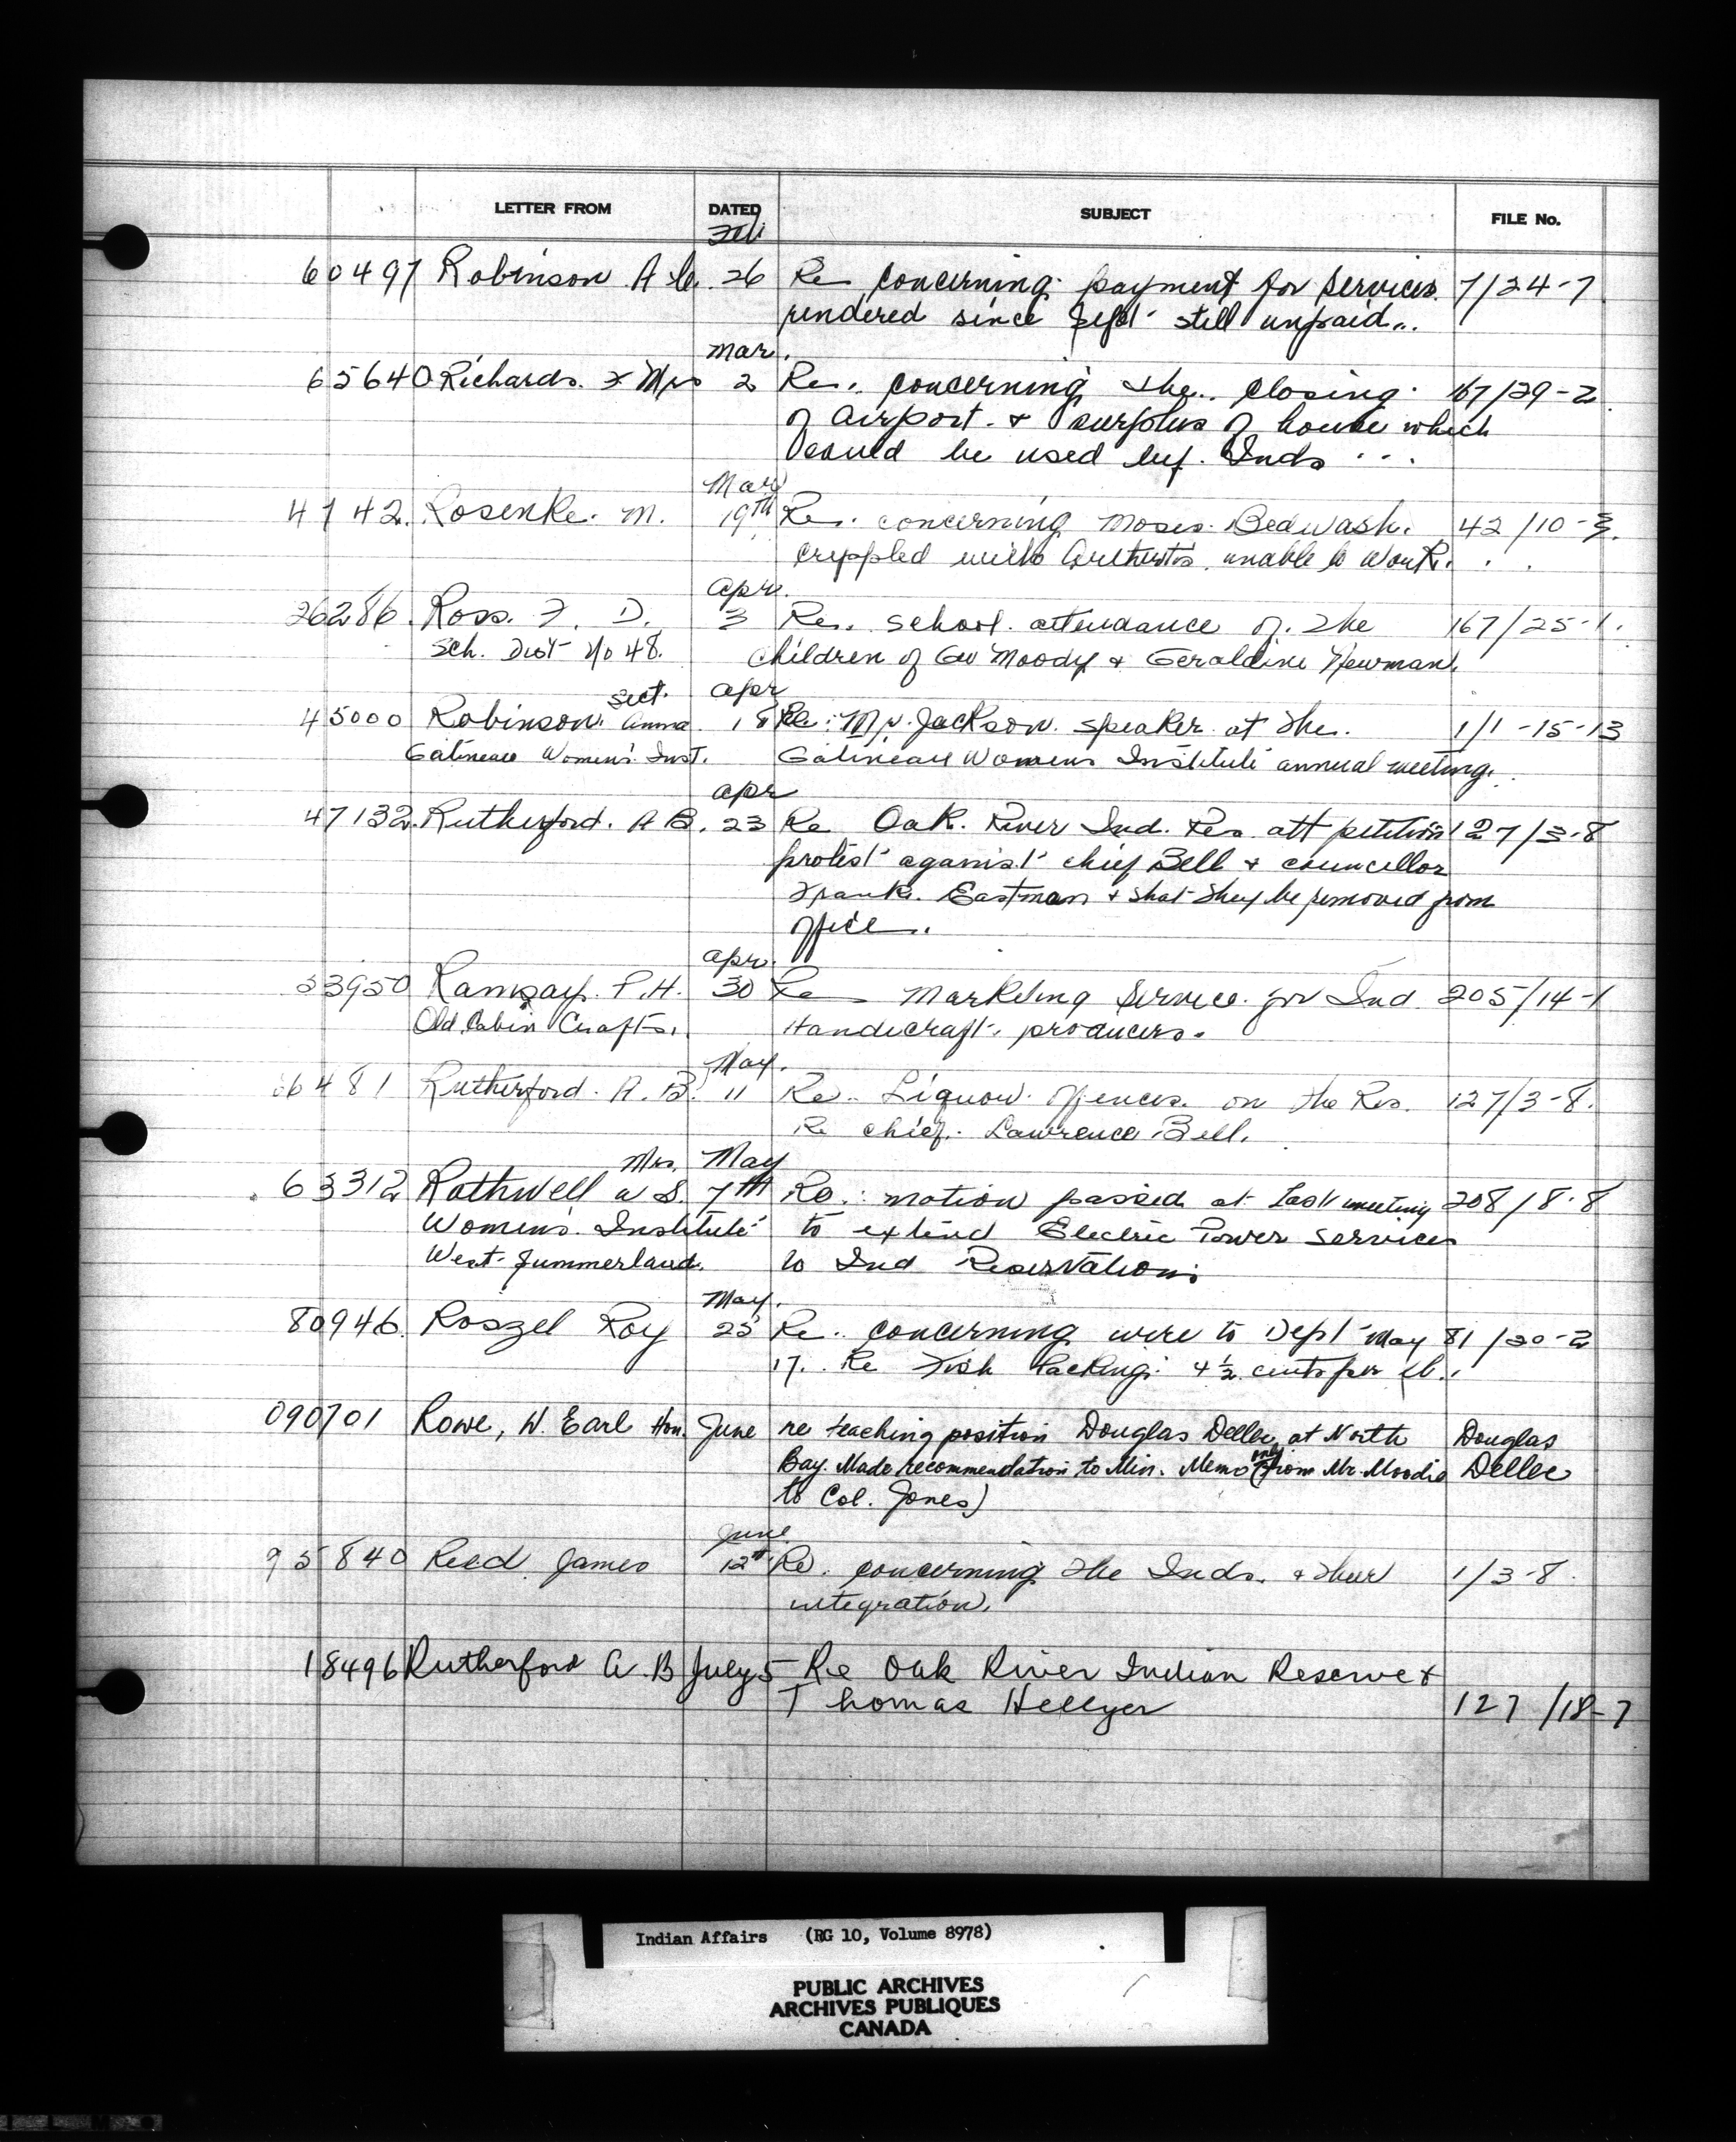 LETTER FROM DATED SUBJECT FILE No.
Feb
60497 Robinson A 26 Re concerning payment for services 7/24-7
rendered since Sept still unpaid...
Mar.
65640 Richards. F Mrs 2 Re. concerning the.. closing 167/29-2
of airport. & surplus of house which
could be used by. Inds ...
Mar
4742. Rosenke. M. 19th Re. concerning Moses. Bedwash. 42/10-3.
crippled with Arthritis. unable to work. . .
Apr.
26286. Ross. F. D. 3 Re. school. attendance of. The 167/25-1.
Sch. Dist No 48. Children of Geo Moody & Geraldine Newman.
Sect. Apr
45000 Robinson. Anna. 18 Re: Mr. Jackson. speaker at the. 1/1-15-13
Gatineau Women's Inst. Gatineau Womens Institute annual meeting.
Apr
47132. Rutherford. A B. 23 Re Oak. River Ind. Res att petition 127/3-8
protest against chief Bell & councillor
Frank. Eastman & that they be removed from
office.
Apr.
53950 Ramsay. P.H. 30 Re Marketing service. for Ind 205/14-1
Old Cabin Crafts. Handicraft. producers.
May.
6481 Rutherford. A. B. 11 Re. Liquor. offences. on the Res. 127/3-8.
Re chief. Lawrence Bell.
Mrs. May
63312 Rothwell W S. 7th Re.: motion passed at last meeting 208/8-8
Women's. Institute to extend Electric Power services
West-Summerland. to Ind Reservations
May.
80946. Roszel Roy 25 Re. concerning wire to Dept May 81/20-2
17. Re Fish Packing. 4½ cents per lb.
090701 Rowe, W. Earl Hon. June re teaching position Douglas Dellee at North Douglas
Bay. Made recommendation to Min. Memo only (from Mr. Moodie Dellee
to Col. Jones)
June
95840 Reed James 12th Re. concerning the Inds. & their 1/3-8.
integration.
18496 Rutherford A. B July 5 Re Oak River Indian Reserve &
Thomas Hellyer 127/18-7
Indian Affairs (RG 10, Volume 8978)
PUBLIC ARCHIVES
ARCHIVES PUBLIQUES
CANADA